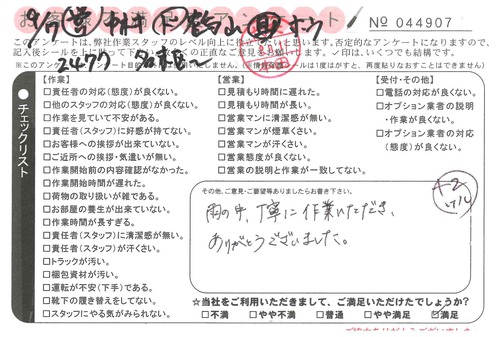 № 044907
このアンケートは、弊社作業スタッフのレベル向上に役立てたいと思います。否定的なアンケートになりますので、
記入後シールを上に
くの正直なご意見をお願いします。✓印は、いくつでも結構です。
2477
チェックリスト
【作業】
□責任者の対応（態度）が良くない。
□他のスタッフの対応（態度）が良くない。
□作業を見ていて不安がある。
□責任者（スタッフ）に好感が持てない。
□お客様への挨拶が出来ていない。
□ご近所への挨拶・気遣いが無い。
□作業開始前の内容確認がなかった。
□作業開始時間が遅れた。
□荷物の取り扱いが雑である。
□お部屋の養生が出来ていない。
□作業時間が長すぎる。
□責任者（スタッフ）に清潔感が無い。
□責任者（スタッフ）が汗くさい。
□トラックが汚い。
□梱包資材が汚い。
□運転が不安（下手）である。
□靴下の履き替えをしてない。
□スタッフにやる気がみられない。
【営業】
□見積もり時間に遅れた。
□見積もり時間が長い。
□営業マンに清潔感が無い。
□営業マンが煙草くさい。
□営業マンが汗くさい。
□営業態度が良くない。
□営業の説明と作業が一致してない。
【受付・その他】
□電話の対応が良くない。
□オプション業者の説明
・作業が良くない。
□オプション業者の対応
（態度）が良くない。
その他、ご意見・ご要望等ありましたらお書き下さい。
雨の中、丁寧に作業いただき、
ありがとうございました。
☆当社をご利用いただきまして、ご満足いただけたでしょうか？
□不満 □やや不満 □普通 □やや満足 ☑満足